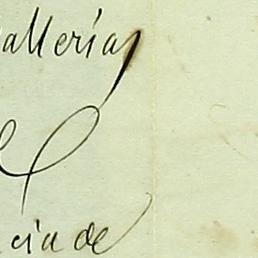 allerías
cia de